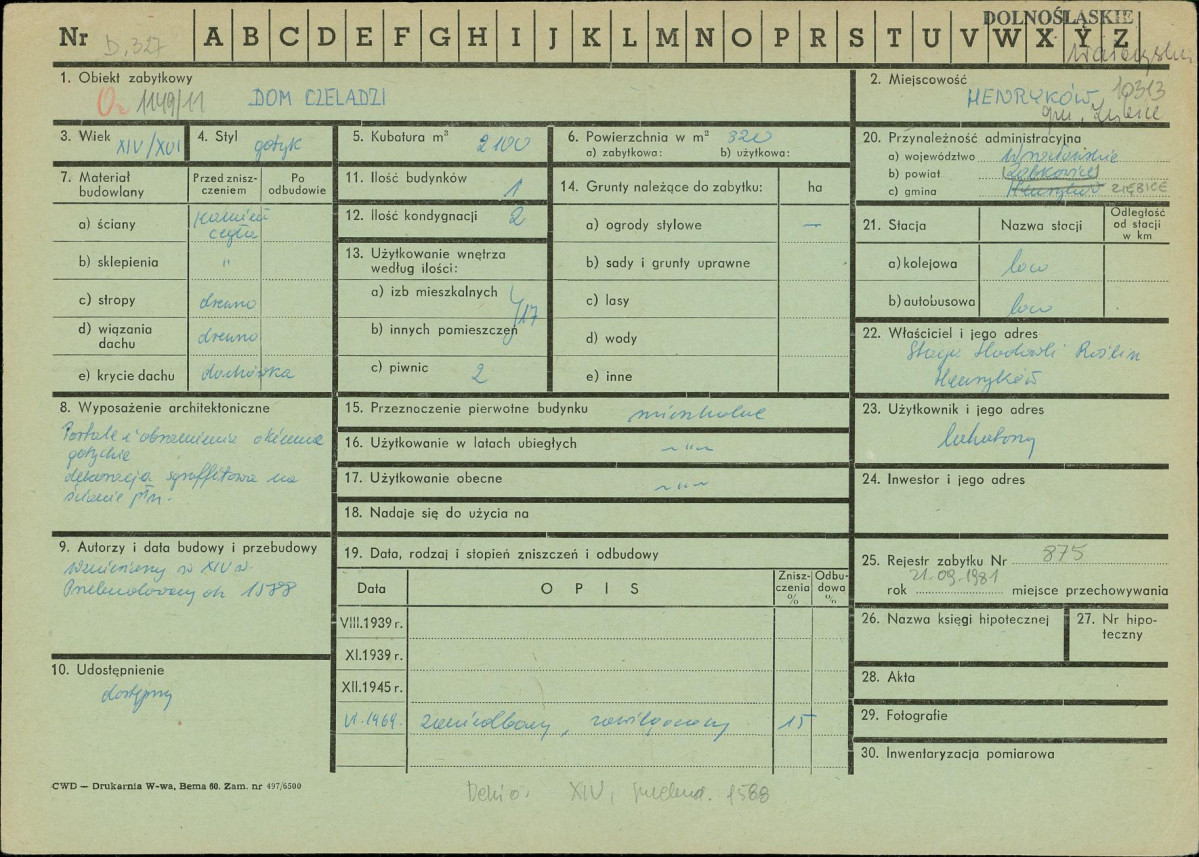 DOLNOŚLĄSKIE
Nr D.327 A B C D E F G H I J K L M N O P R S T U V W X Y Z
1. Obiekt zabytkowy
1149/11 DOM CZELADZI
2. Miejscowość
HENRYKÓW, 10313
gm. Ziębice
3. Wiek XIV/XVI
4. Styl gotyk
5. Kubatura m³ 2100
6. Powierzchnia w m² 320
a) zabytkowa: b) użytkowa:
7. Materiał budowlany
Przed znisz-
czeniem
Po
odbudowie
a) ściany kamień
cegła
b) sklepienia "
c) stropy drewno
d) wiązania
dachu drewno
e) krycie dachu dachówka
8. Wyposażenie architektoniczne
Portale i obramienia okienne
gotyckie
dekoracja sgraffitowa na
ścianie płn.
9. Autorzy i data budowy i przebudowy
Wzniesiony w XIV w
Przebudowany ok 1588
10. Udostępnienie
dostępny
11. Ilość budynków 1
12. Ilość kondygnacji 2
13. Użytkowanie wnętrza
według ilości:
a) izb mieszkalnych
17
b) innych pomieszczeń
c) piwnic 2
14. Grunty należące do zabytku: ha
a) ogrody stylowe —
b) sady i grunty uprawne
c) lasy
d) wody
e) inne
15. Przeznaczenie pierwotne budynku mieszkalne
16. Użytkowanie w latach ubiegłych ~"~
17. Użytkowanie obecne ~"~
18. Nadaje się do użycia na
19. Data, rodzaj i stopień zniszczeń i odbudowy
Data OPIS
Znisz-
czenia
%
Odbu-
dowa
%
VIII.1939 r.
XI.1939 r.
XII.1945 r.
VI.1969. zaniedbany, zawilgocony 15
20. Przynależność administracyjna
a) województwo Wrocławskie
b) powiat (Ząbkowice)
c) gmina Henryków ZIĘBICE
21. Stacja Nazwa stacji
Odległość
od stacji
w km
a) kolejowa loco
b) autobusowa loco
22. Właściciel i jego adres
Stacja Hodowli Roślin
Henryków
23. Użytkownik i jego adres
lokatorzy
24. Inwestor i jego adres
25. Rejestr zabytku Nr 875
21.09.1981
rok miejsce przechowywania
26. Nazwa księgi hipotecznej
27. Nr hipo-
teczny
28. Akta
29. Fotografie
30. Inwentaryzacja pomiarowa
CWD — Drukarnia W-wa, Bema 60. Zam. nr 497/6500
Dehio: XIV, przebud. 1588